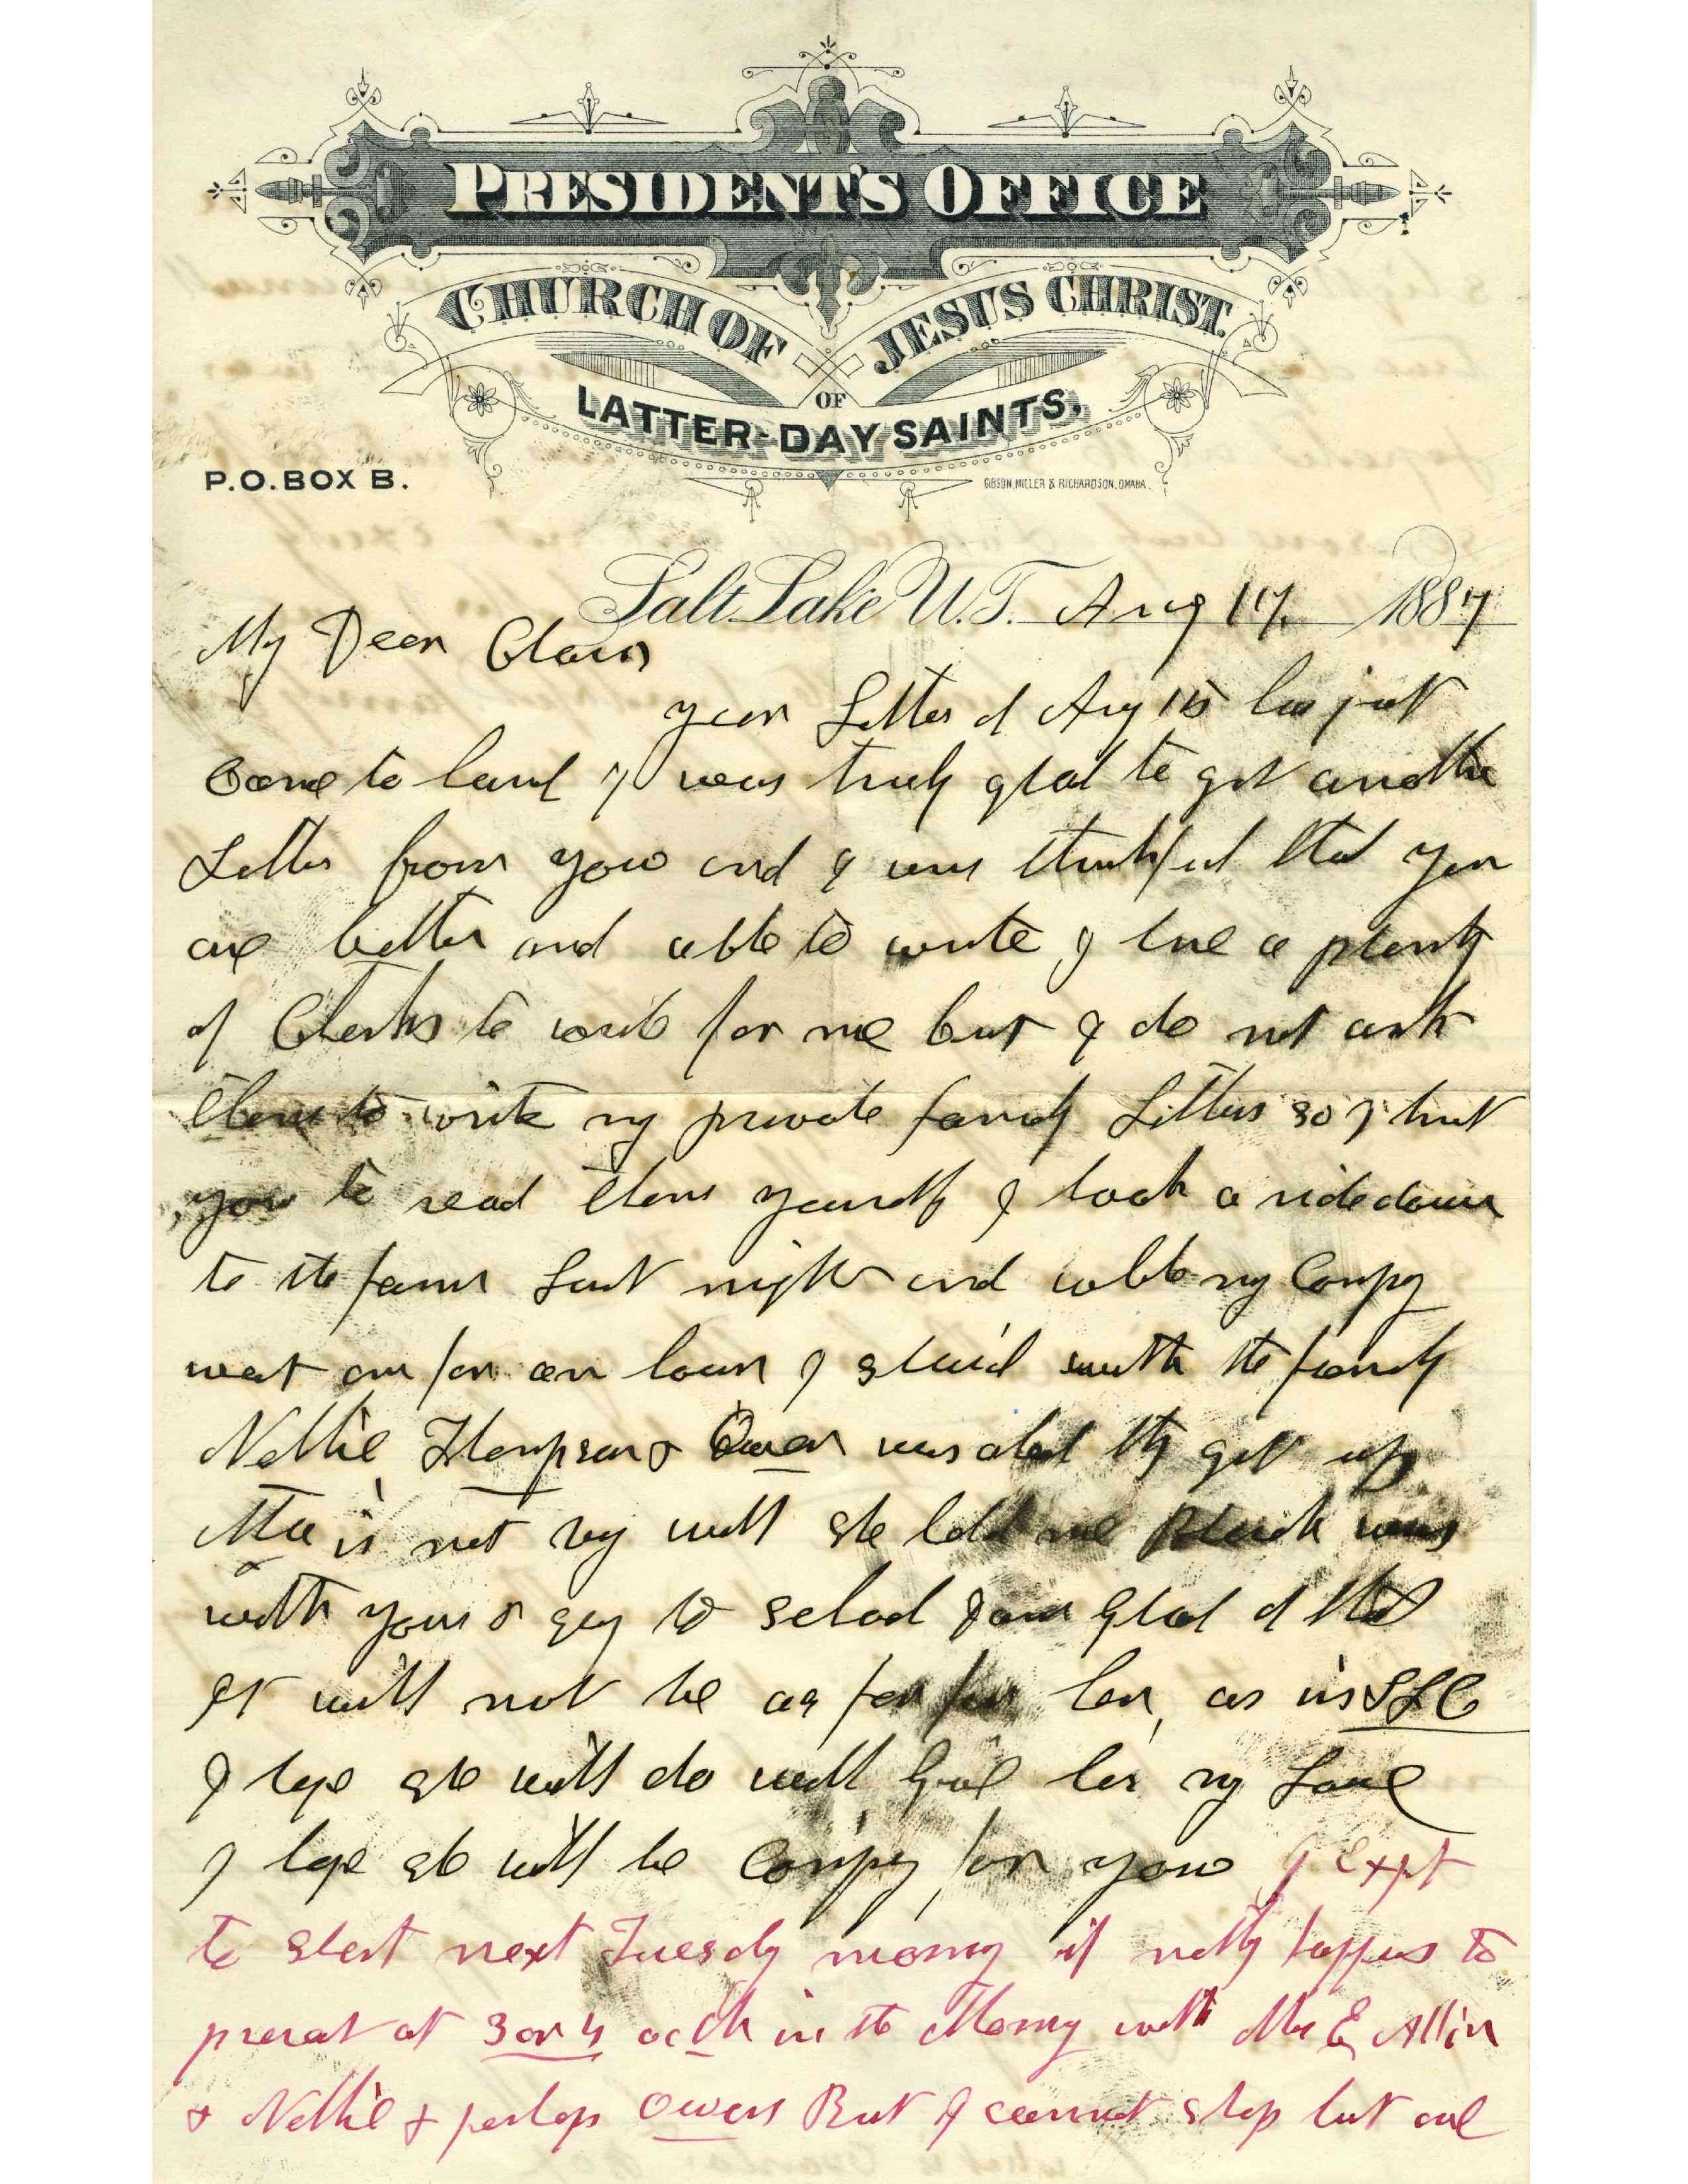 PRESIDENT'S OFFICE
CHURCH OF JESUS CHRIST
OF
LATTER-DAY SAINTS.
P.O. BOX B.
GIBSON, MILLER & RICHARDSON, OMAHA.
Salt Lake U.T. Aug 17. 1887
My Dear Clara
your Letter of Aug 15 has just
Come to hand I was truly glad to get another
Letter from you and I was thankful that you
are better and able to write I have a plenty
of Clerks to write for me but I do not ask
them to write my private family Letters so I trust
you to read them yourself I took a ride down
to the farm Last night and while my Company
went out for an hour I staid with the family
Nellie, Thompson & Owen was abed they got up
is not very well she told me was
with you & going to school I am glad of that
It will not be as far for her, as in SLC
I hope she will do well Give her my Love
I hope she will be Company for you I Expt
to start next Tuesday morning if nothing happens to
prevent at 3 or 4 oclok in the Morning with E Allin
& Nellie & perhaps Owen But I cannot stop but one